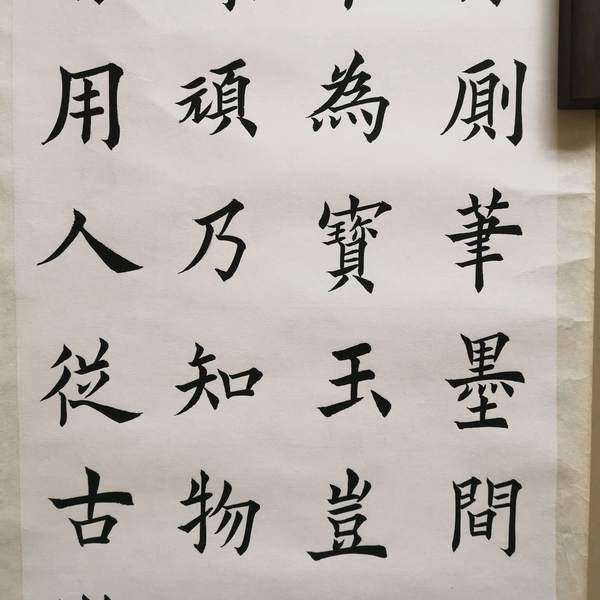 厠筆墨間
為寶玉豈
頑乃知物
用人從古